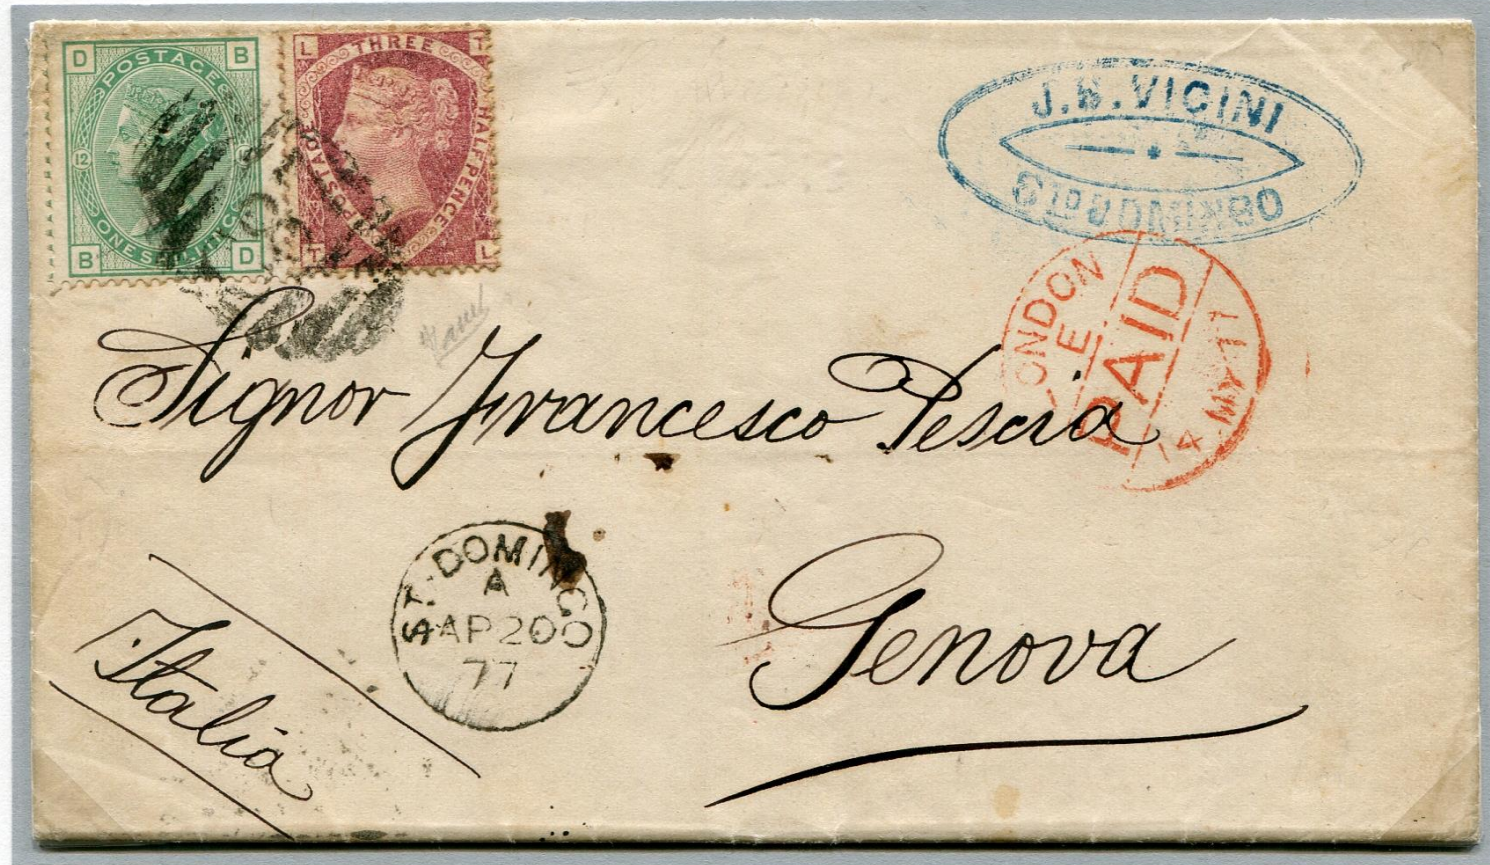 D B
POSTAGE
12
ONE SHILLING
B D
L T
THREE
HALFPENCE
POSTAGE
T L
J. B. VICINI
Sto DOMINGO
LONDON
E
PAID
14 MY 77
Signor Francesco Pescia
ST. DOMINGO
A
AP 20
77
Genova
Italia